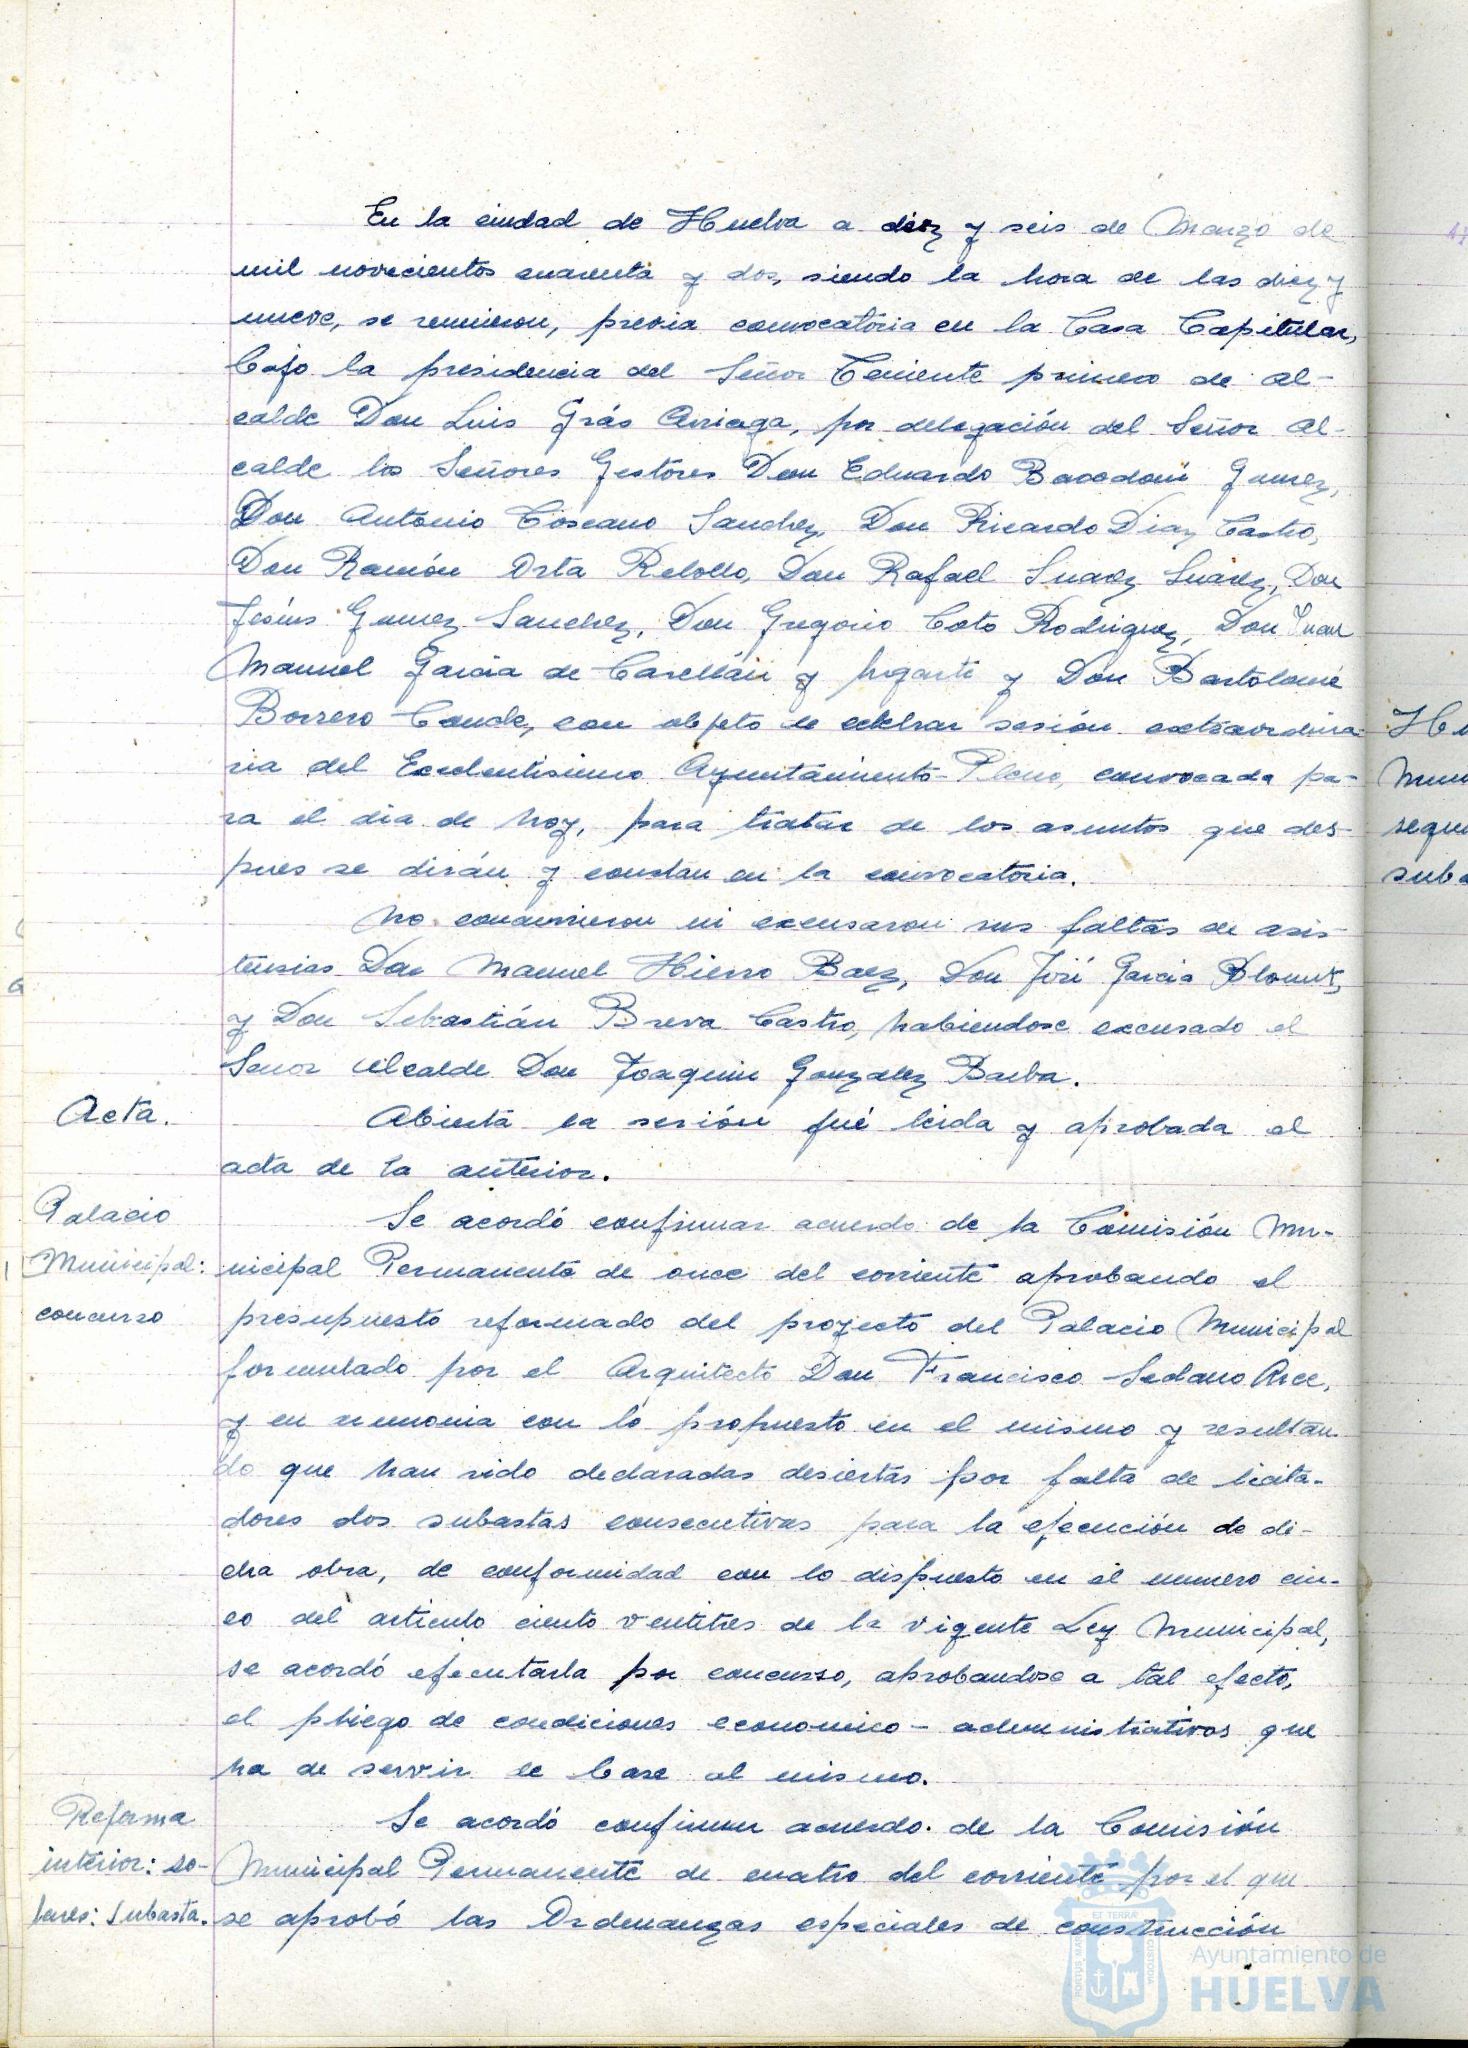 En la ciudad de Huelva a diez y seis de Marzo de
mil novecientos cuarenta y dos, siendo la hora de las diez y
nueve, se reunieron, previa convocatoria en la Casa Capitular,
bajo la presidencia del Señor Teniente primero de Al-
calde Don Luis Grás Arriaga, por delegación del Señor Al-
calde los Señores Gestores Don Eduardo Gomez,
Don Antonio Toscano Sanchez, Don Ricardo Diaz Castro,
Don Ramón Orta Rebollo, Don Rafael Suarez Suarez, Don
Jesús Gomez Sanchez, Don Gregorio Coto Rodriguez, Don Juan
Manuel Garcia de Castellán y Ingarti y Don Bartolomé
Borrero Conde, con objeto de celebrar sesión extraordina-
ria del Excelentisimo Ayuntamiento-Pleno, convocada pa-
ra el dia de hoy, para tratar de los asuntos que des-
pues se dirán y constan en la convocatoria.
No concurrieron ni excusaron sus faltas de asis-
tencias Don Manuel Hierro Baez, Don José Garcia
y Don Sebastián Breva Castro, habiendose excusado el
Señor Alcalde Don Joaquin Gonzalez Barba.
Acta.
Abierta la sesión fué leida y aprobada el
acta de la anterior.
Palacio
Municipal:
concurso
Se acordó confirmar acuerdo de la Comisión Mu-
nicipal Permanente de once del corriente aprobando el
presupuesto reformado del proyecto del Palacio Municipal
formulado por el Arquitecto Don Francisco Sedano Arce,
y en armonia con lo propuesto en el mismo y resultan-
do que han sido declaradas desiertas por falta de licita-
dores dos subastas consecutivas para la ejecución de di-
cha obra, de conformidad con lo dispuesto en el numero cin-
co del articulo ciento ventitres de la vigente Ley Municipal,
se acordó ejecutarla por concurso, aprobandose a tal efecto,
el pliego de condiciones economico-administrativas que
ha de servir de base al mismo.
Reforma
interior: so-
lares: subasta.
Se acordó confirmar acuerdo de la Comisión
Municipal Permanente de cuatro del corriente por el que
se aprobó las Ordenanzas especiales de construcción
Ayuntamiento de
HUELVA